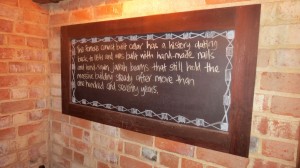 This famous convict built cellar has a history dating
back to 1840 and was built with hand-made nails
and hand-hewn Jarrah beams that still hold the
massive building steady after more than
one hundred and seventy years.